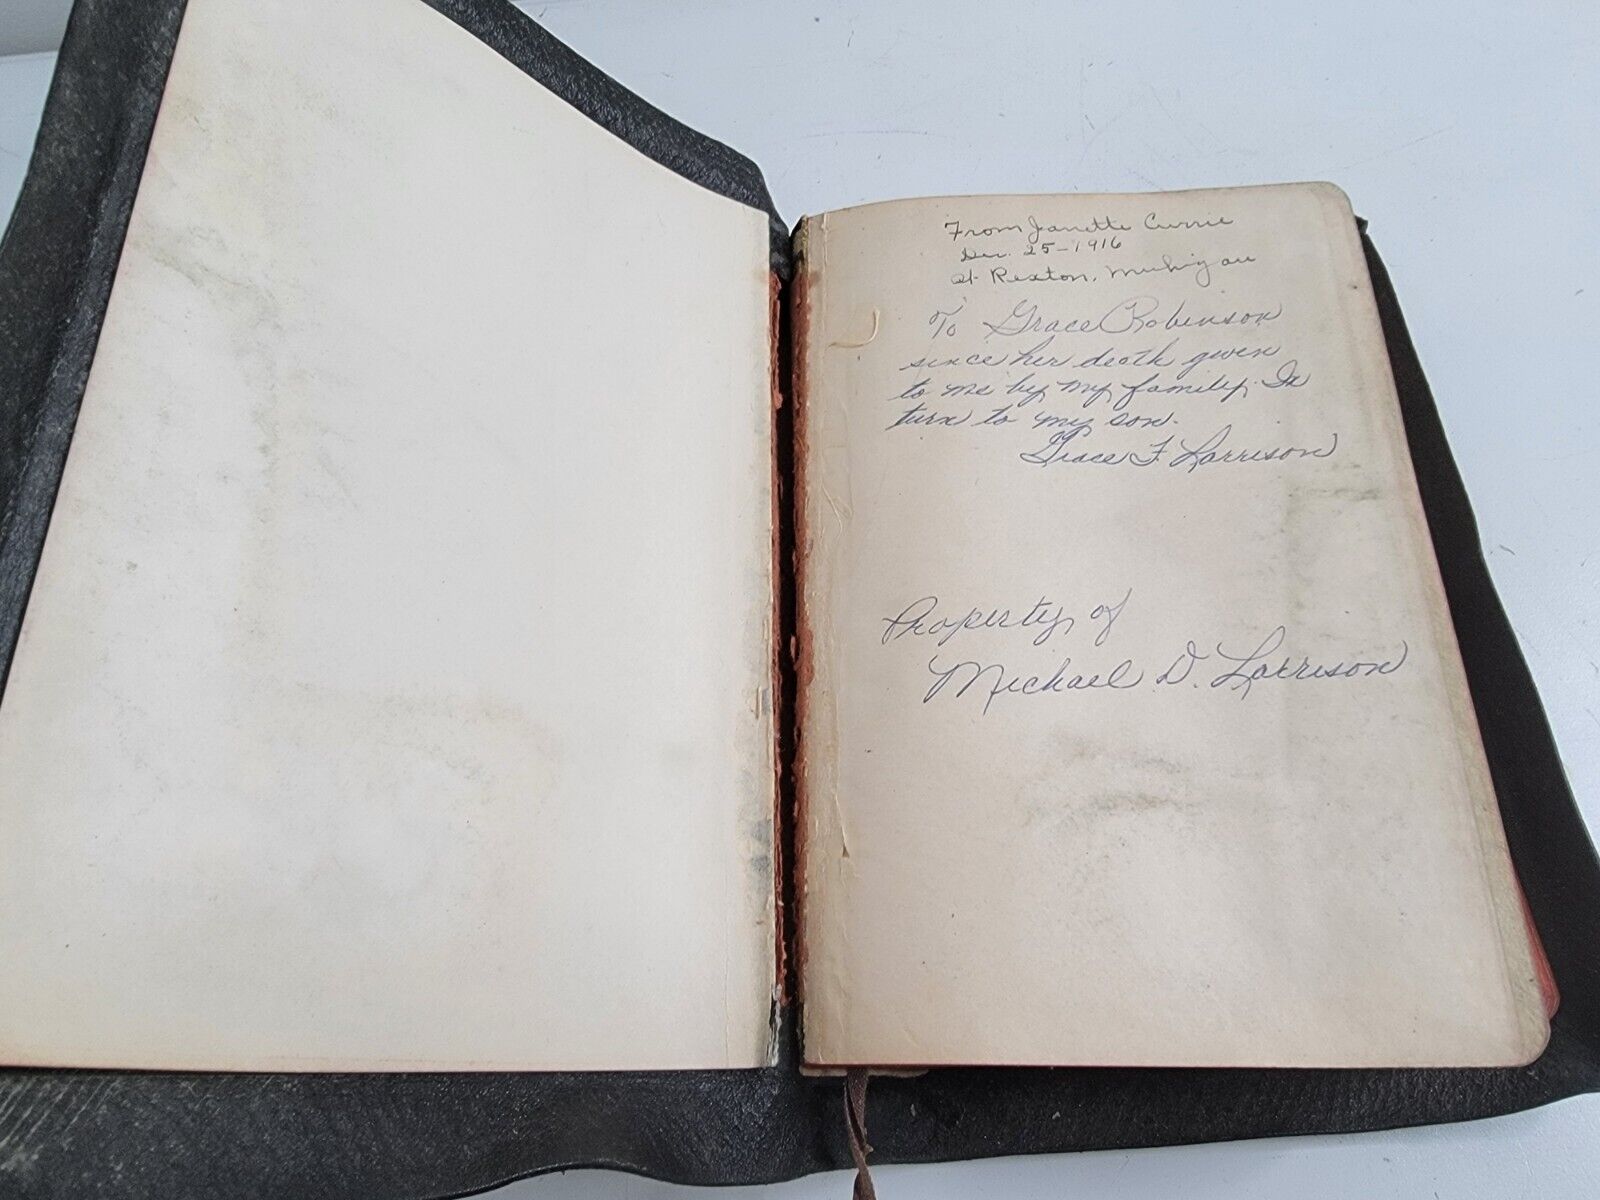 From Janette Currie
Dec. 25-1916
at Rexton, Michigan
To Grace Robinson
since her death given
to me by my family. In
turn to my son.
Grace F. Larrison
Property of
Michael D. Larrison